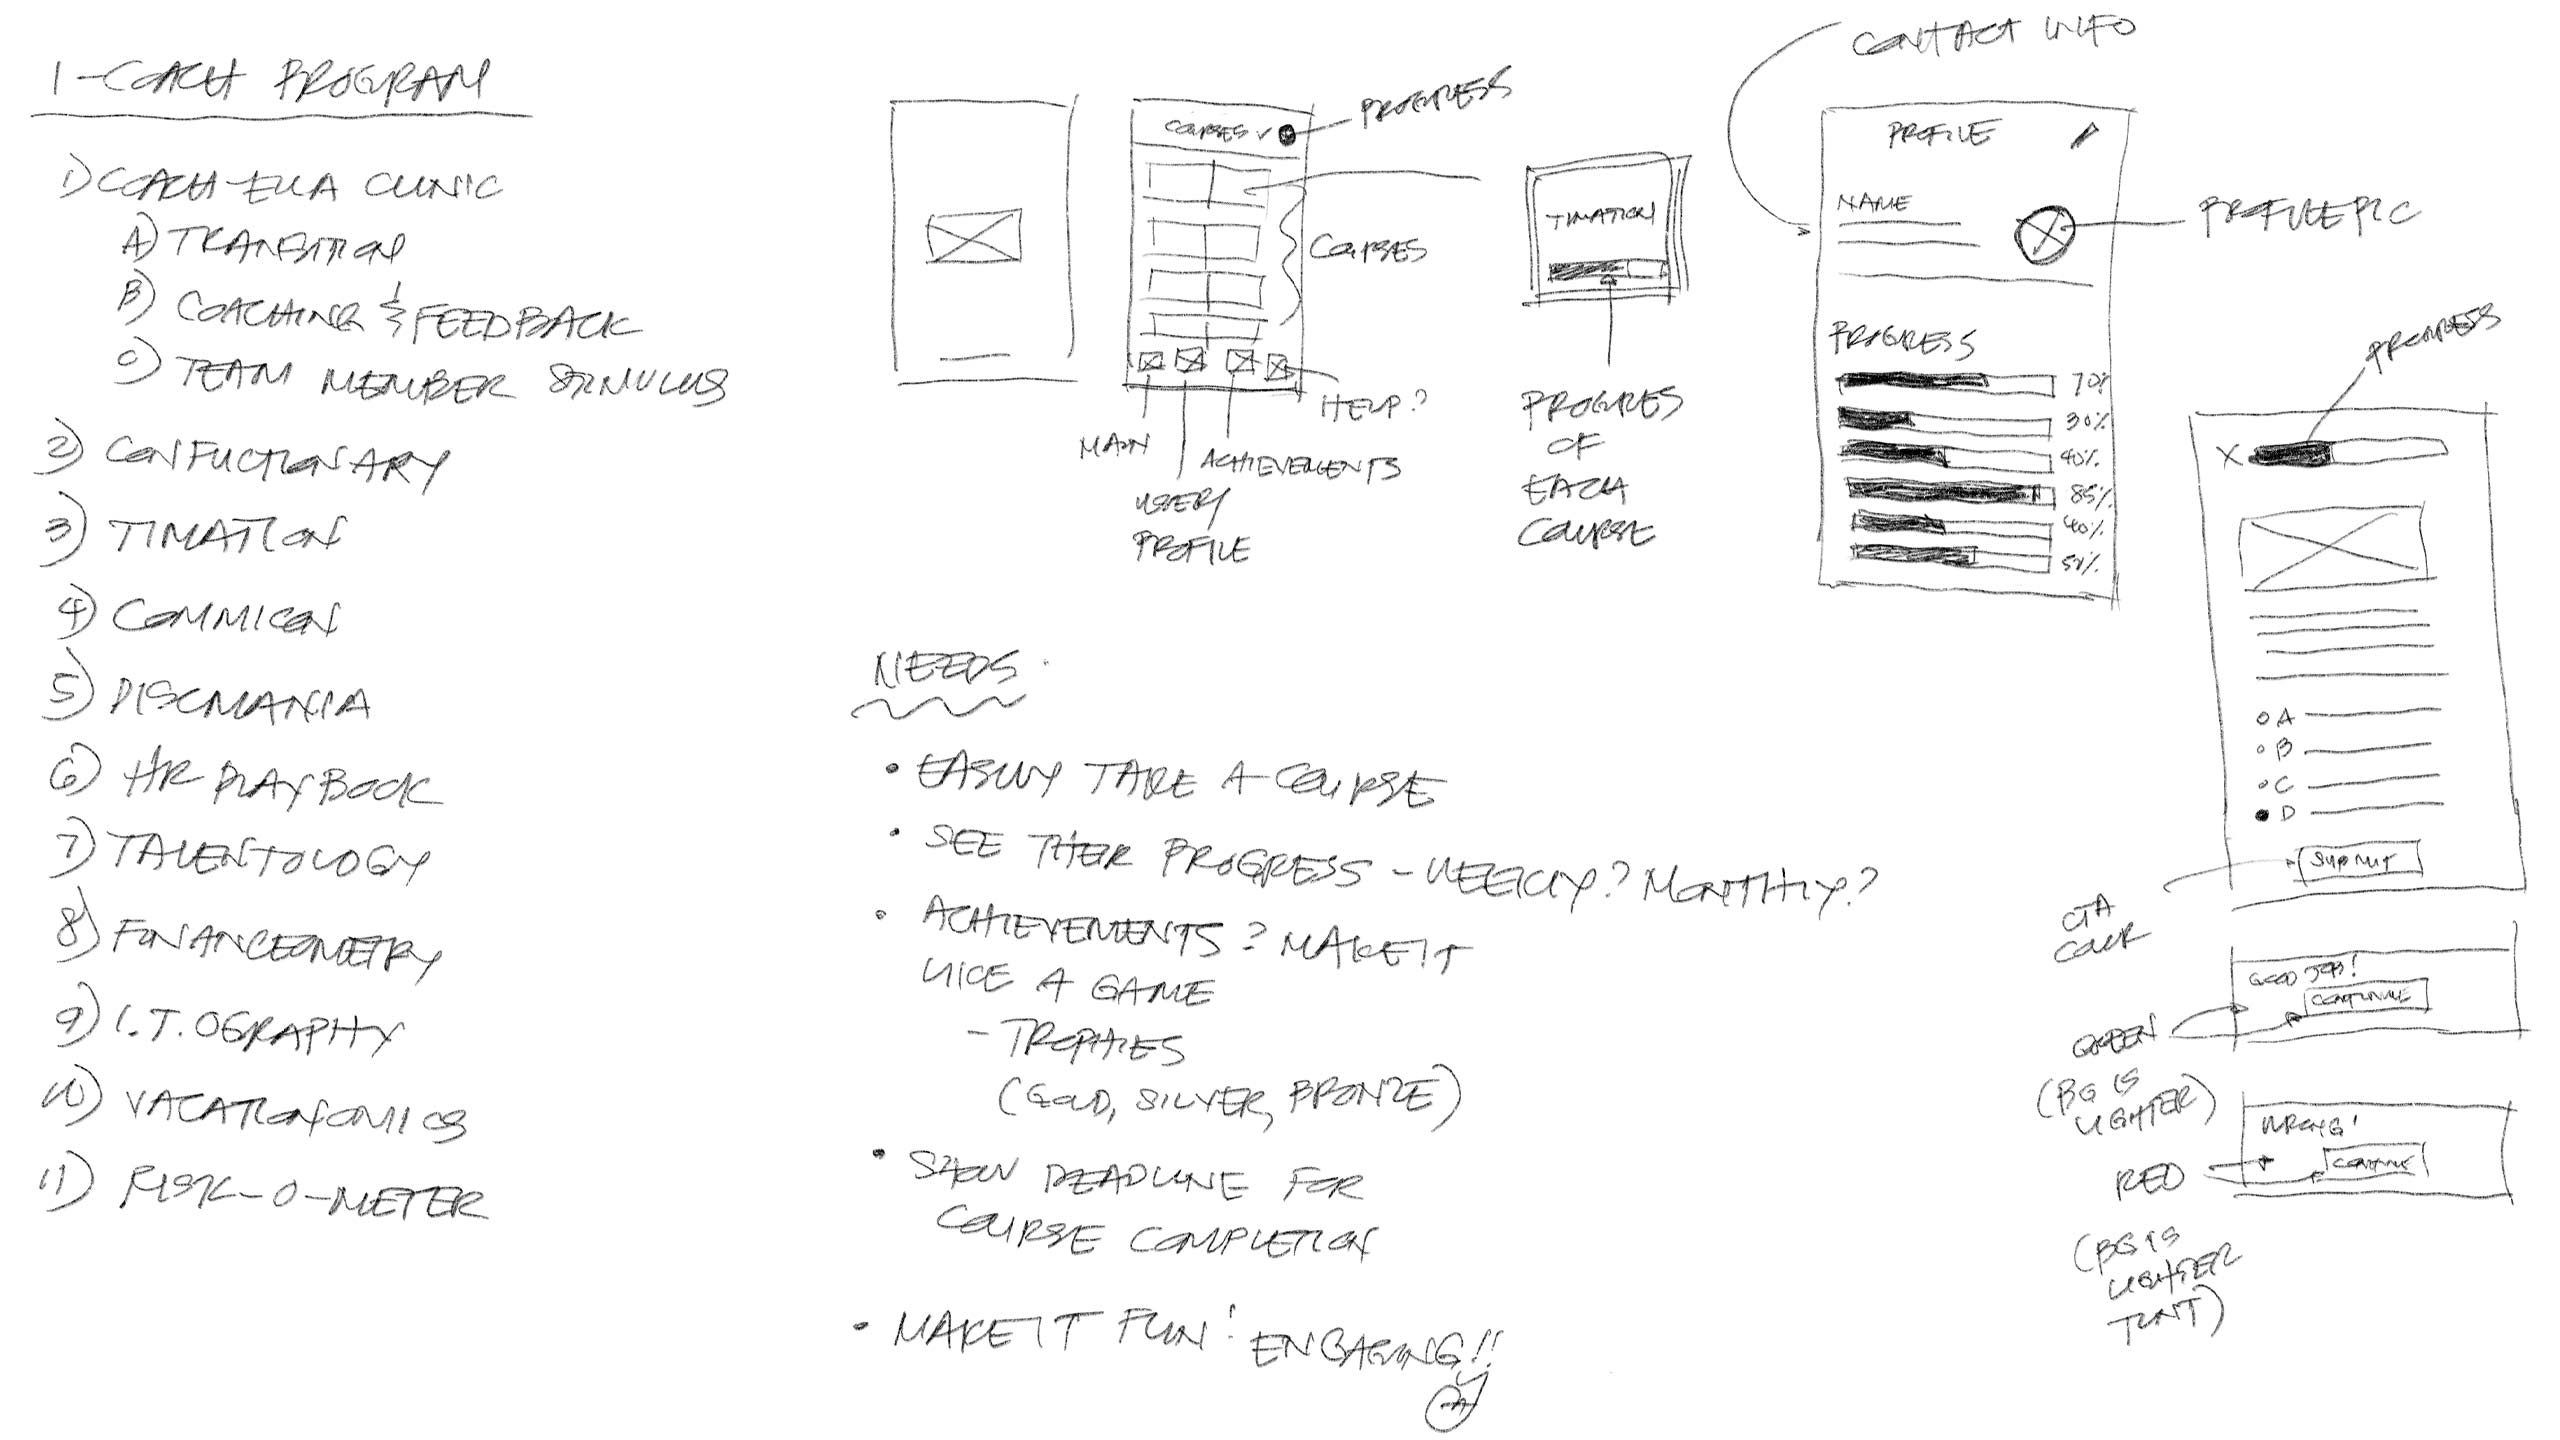 1-COACH PROGRAM
1) COACH-ELLA CLINIC
A) TRANSITION
B) COACHING & FEEDBACK
C) TEAM MEMBER STIMULUS
2) CONFUCTIONARY
3) TIMATION
4) COMMICON
5) DISCMANIA
6) HR PLAYBOOK
7) TALENTOLOGY
8) FINANCEOMETRY
9) I.T.OGRAPHY
10) VACATIONOMICS
11) RISK-O-METER
COURSES
PROGRESS
COURSES
HELP?
MAIN
ACHIEVEMENTS
USER
PROFILE
TIMATION
PROGRES
OF
EACH
COURSE
CONTACT INFO
PROFILE
NAME
PROFILE PIC
PROGRESS
70%
30%
40%
85%
40%
50%
PROGRESS
X
A
B
C
D
SUBMIT
CTA
COLR
GOOD JOB!
CONTINUE
GREEN
(BG IS
LIGHTER)
WRONG!
CONTINUE
RED
(BG IS
LIGHTER
TINT)
NEEDS
• EASILY TAKE A COURSE
• SEE THEIR PROGRESS - WEEKLY? MONTHLY?
• ACHIEVEMENTS? MAKE IT
LIKE A GAME
- TROPHIES
(GOLD, SILVER, BRONZE)
• SHOW DEADLINE FOR
COURSE COMPLETION
• MAKE IT FUN! ENGAGING!!